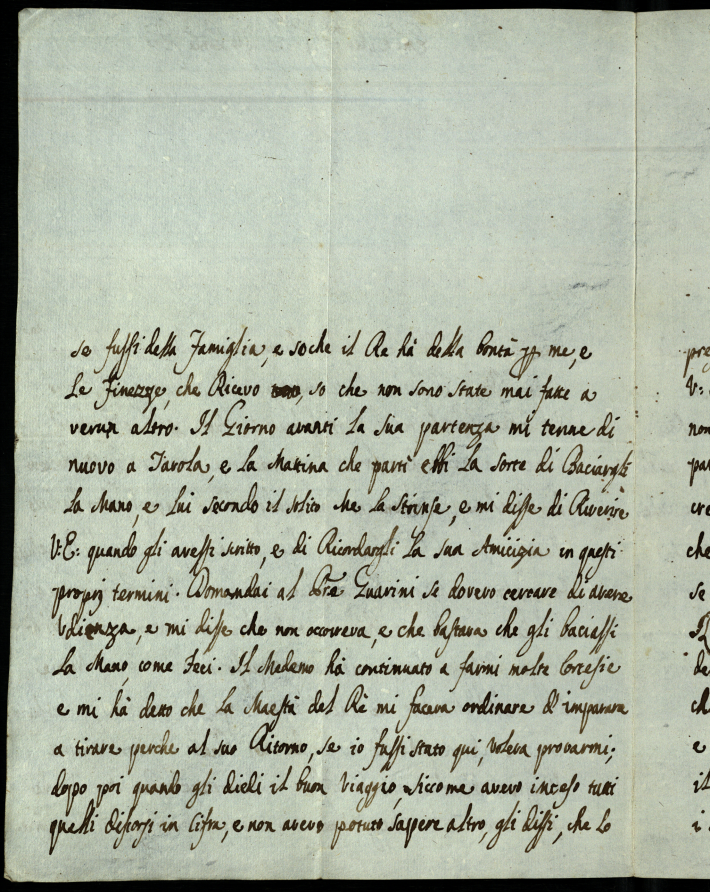 se fussi della Famiglia, e so che il Re hà della bontà p me, e
Le Finezze, che Ricevo, so che non sono state mai fatte a
verun altro. Il Giorno avanti La sua partenza mi tenne di
nuovo a Tavola, e La Mattina che partì ebbi La sorte di Baciargli
La Mano, e Lui secondo il solito Me La Strinse, e mi disse di Riverire
V:E: quando gli avessi scritto, e di Ricordargli La sua Amicizia in questi
proprj termini. Domandai al Pre Guarini se dovevo cercare di avere
Vdienza, e mi disse che non occorreva, e che bastava che gli baciassi
La Mano, come Feci. Il Medemo hà continuato a farmi molte Cortesie
e mi hà detto che La Maestà del Rè mi faceva ordinare d'imparare
a tirare perche al suo Ritorno, se io fussi stato qui, voleva provarmi;
dopo poi quando gli diedi il buon Viaggio, siccome avevo inteso tutti
quelli discorsi in Cifra, e non avevo potuto sapere altro, gli dissi, che Lo
pre
V:
non
pa
cre
che
se
de
ch
e
il
i